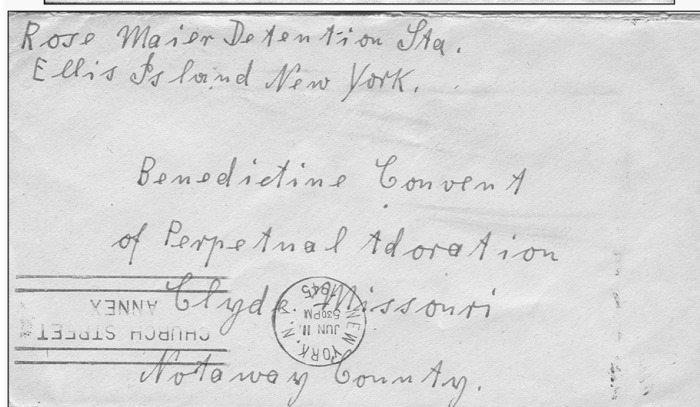 Rose Maier Detention Sta.
Ellis Island New York.
Benedictine Convent
of Perpetual Adoration
Clyde Missouri
Notaway County.
CHURCH STREET
ANNEX
NEW YORK, N.
JUN 11
530PM
1945